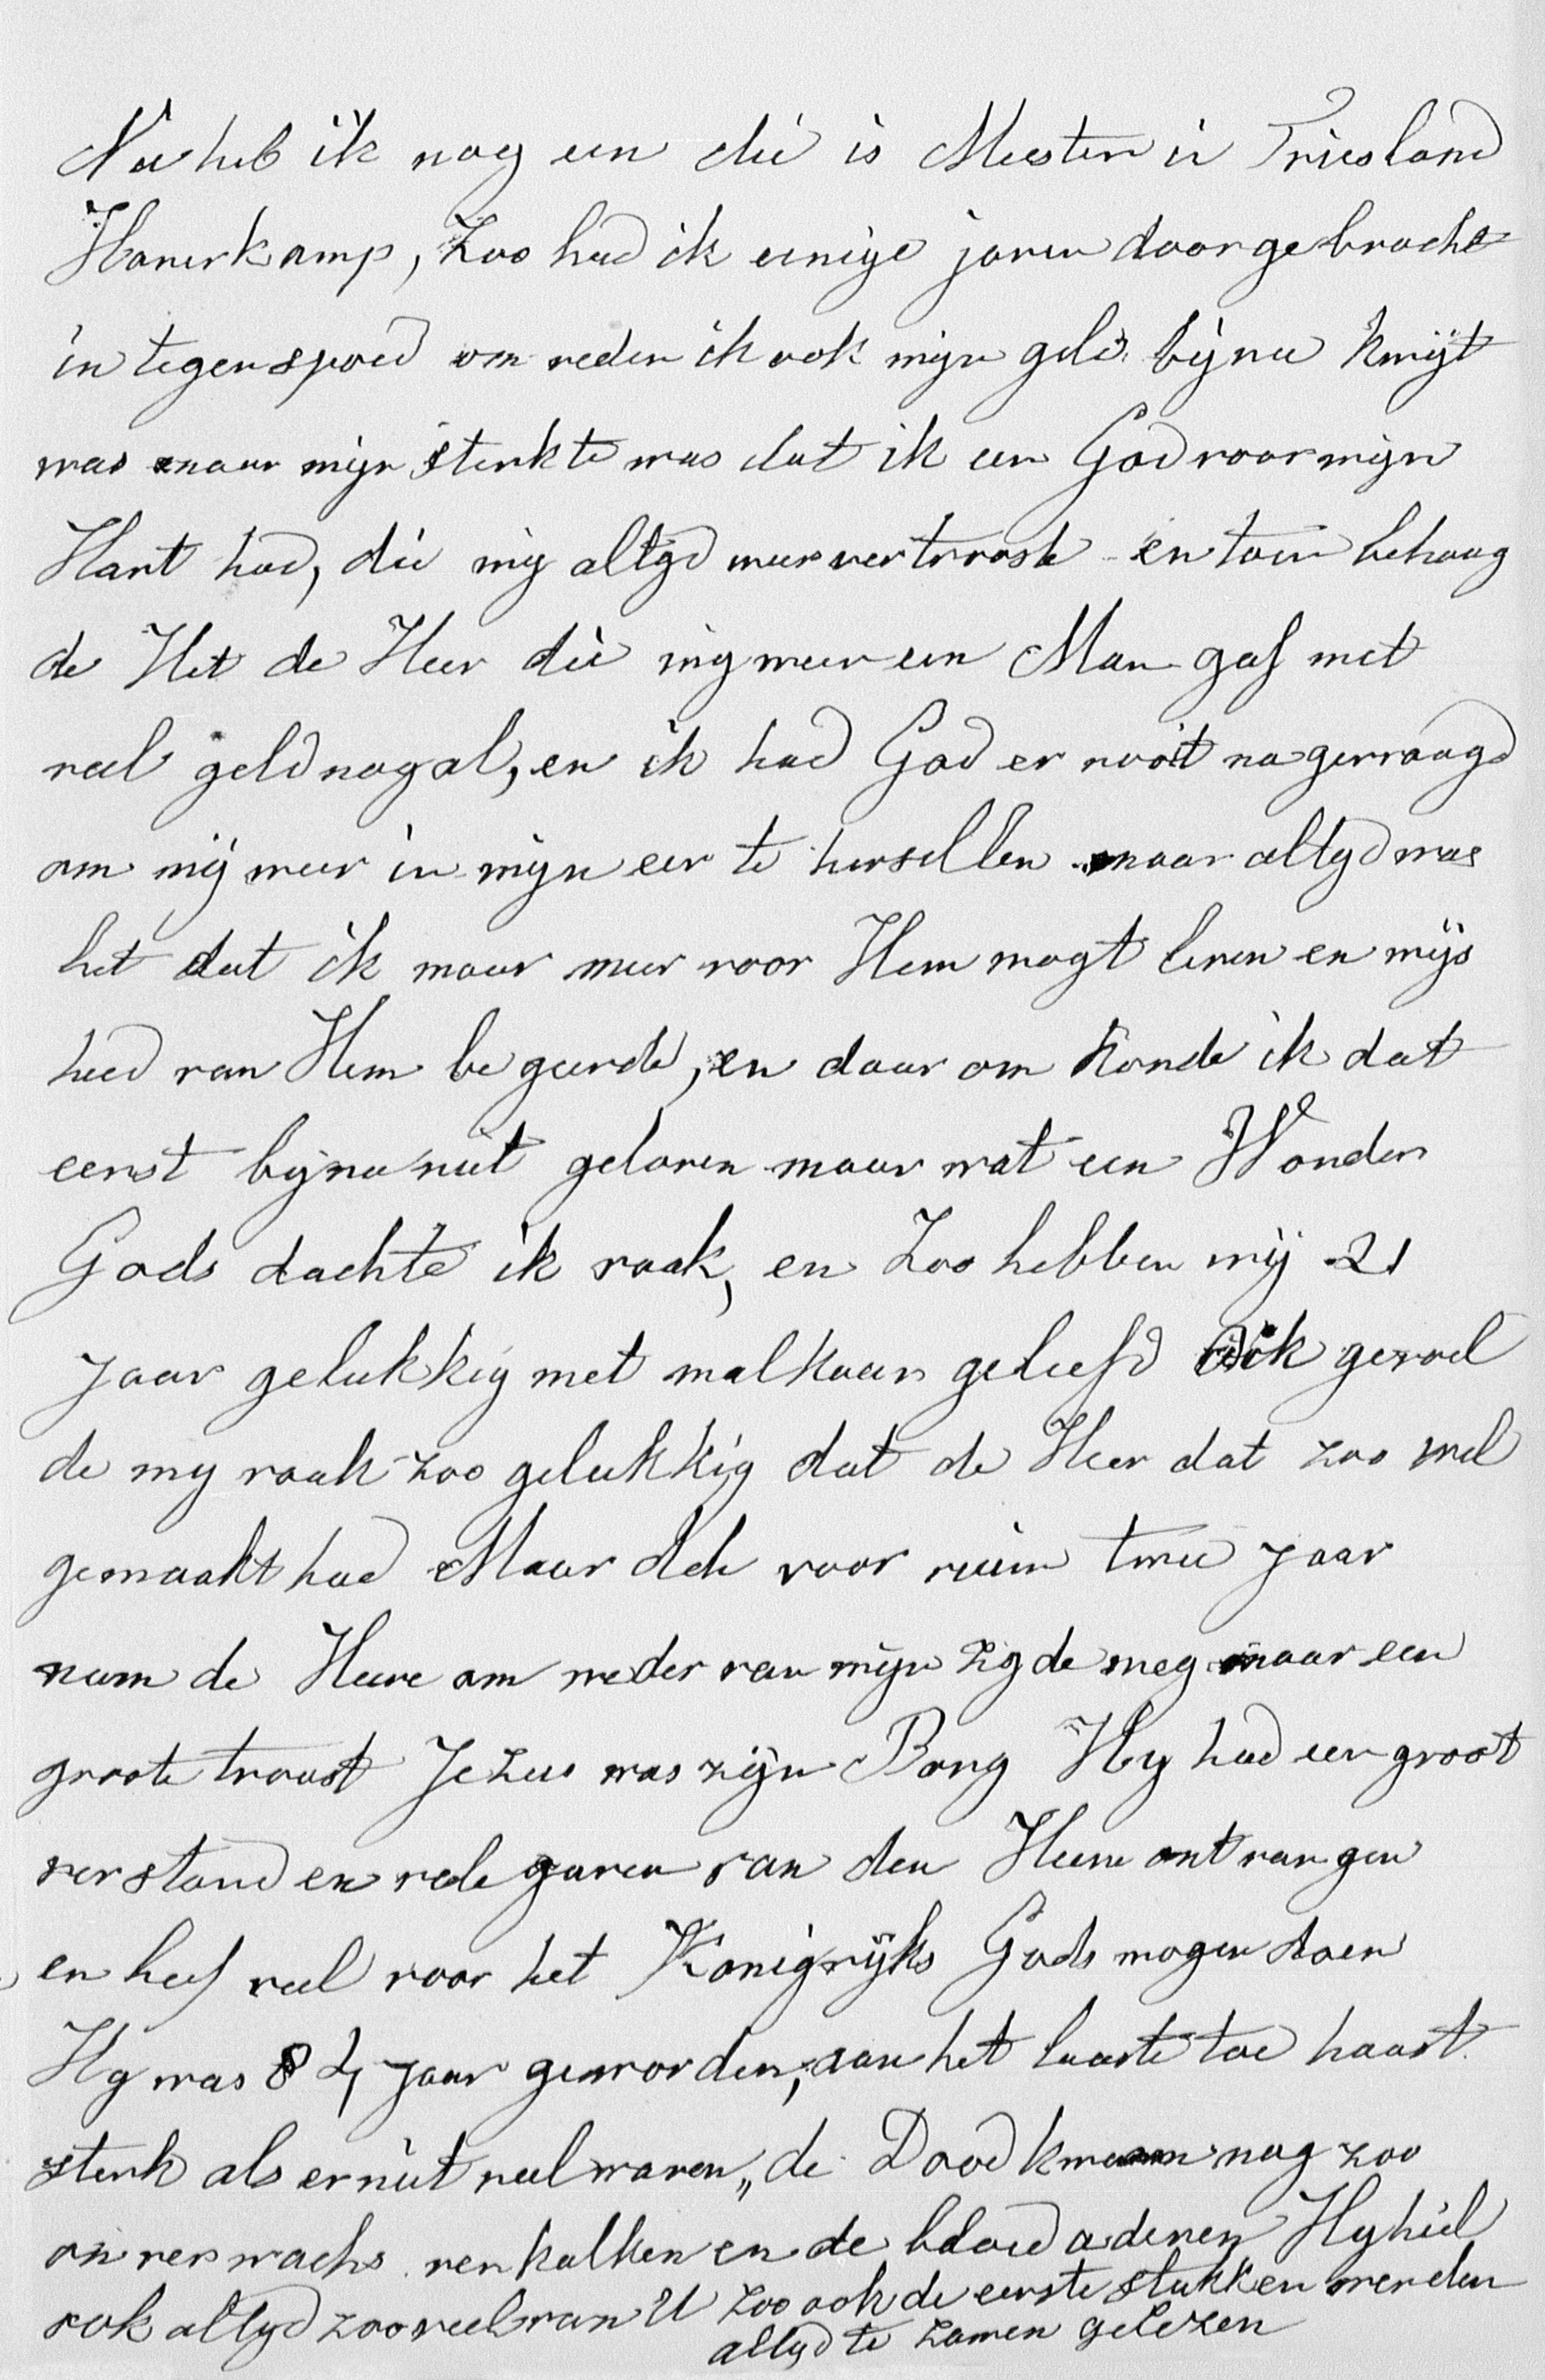 Nu heb ik nog een die is Meester in Friesland
Haverkamp, Zoo had ik einige jaren doorgebracht
in tegenspoed om reden ik ook mijn geld bijna kwijt
was maar mijn sterkte was dat ik een God voor mijn
Hart had, die mij altyd weer vertrooste en toen behaag
de Het de Heer die mij weer een Man gaf met
veel geld nog al, en ik had God er nooit na gevraagd
om mij weer in mijn eer te herstellen maar altyd was
het dat ik maar meer voor Hem mogt leven en wijs
heed van Hem begeerde, en daar om konde ik dat
eerst byna niet geloven maar wat een Wonder
Gods dachte ik vaak, en Zoo hebben wij 21
Jaar gelukkig met malkaar geleefd Ook gevoel
de my vaak zoo gelukkig dat de Heer dat zoo wel
gemaakt had Maar Och voor ruim twee Jaar
nam de Heere om weder van mijn zijde weg maar een
groote troost Jezus was zijn Borg Hy had een groot
verstand en vele gaven van den Heere ontvangen
en heef veel voor het Konigrijks Gods mogen doen
Hy was 84 Jaar geworden, aan het laaste toe haast
sterk als er niet veel waren,, de Dood kwam nog zoo
onverwachs verkalken en de bloed aderen Hy hiel
ook altyd zoo veel van U zoo ook de eerste stukken werden
altyd te zamen gelezen